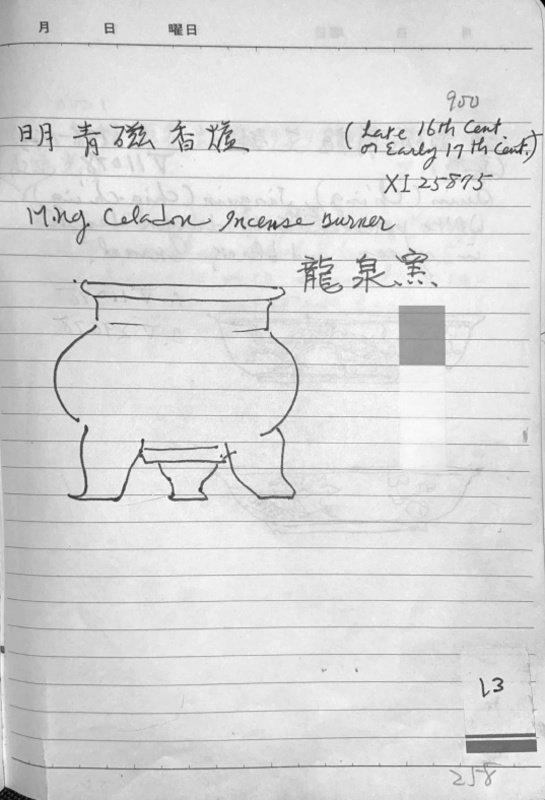 月 日 曜日
900
明 青磁香爐
(Late 16th Cent
or Early 17th Cent.)
XI 25875
Ming Celadon Incense Burner
龍泉窯
13
258